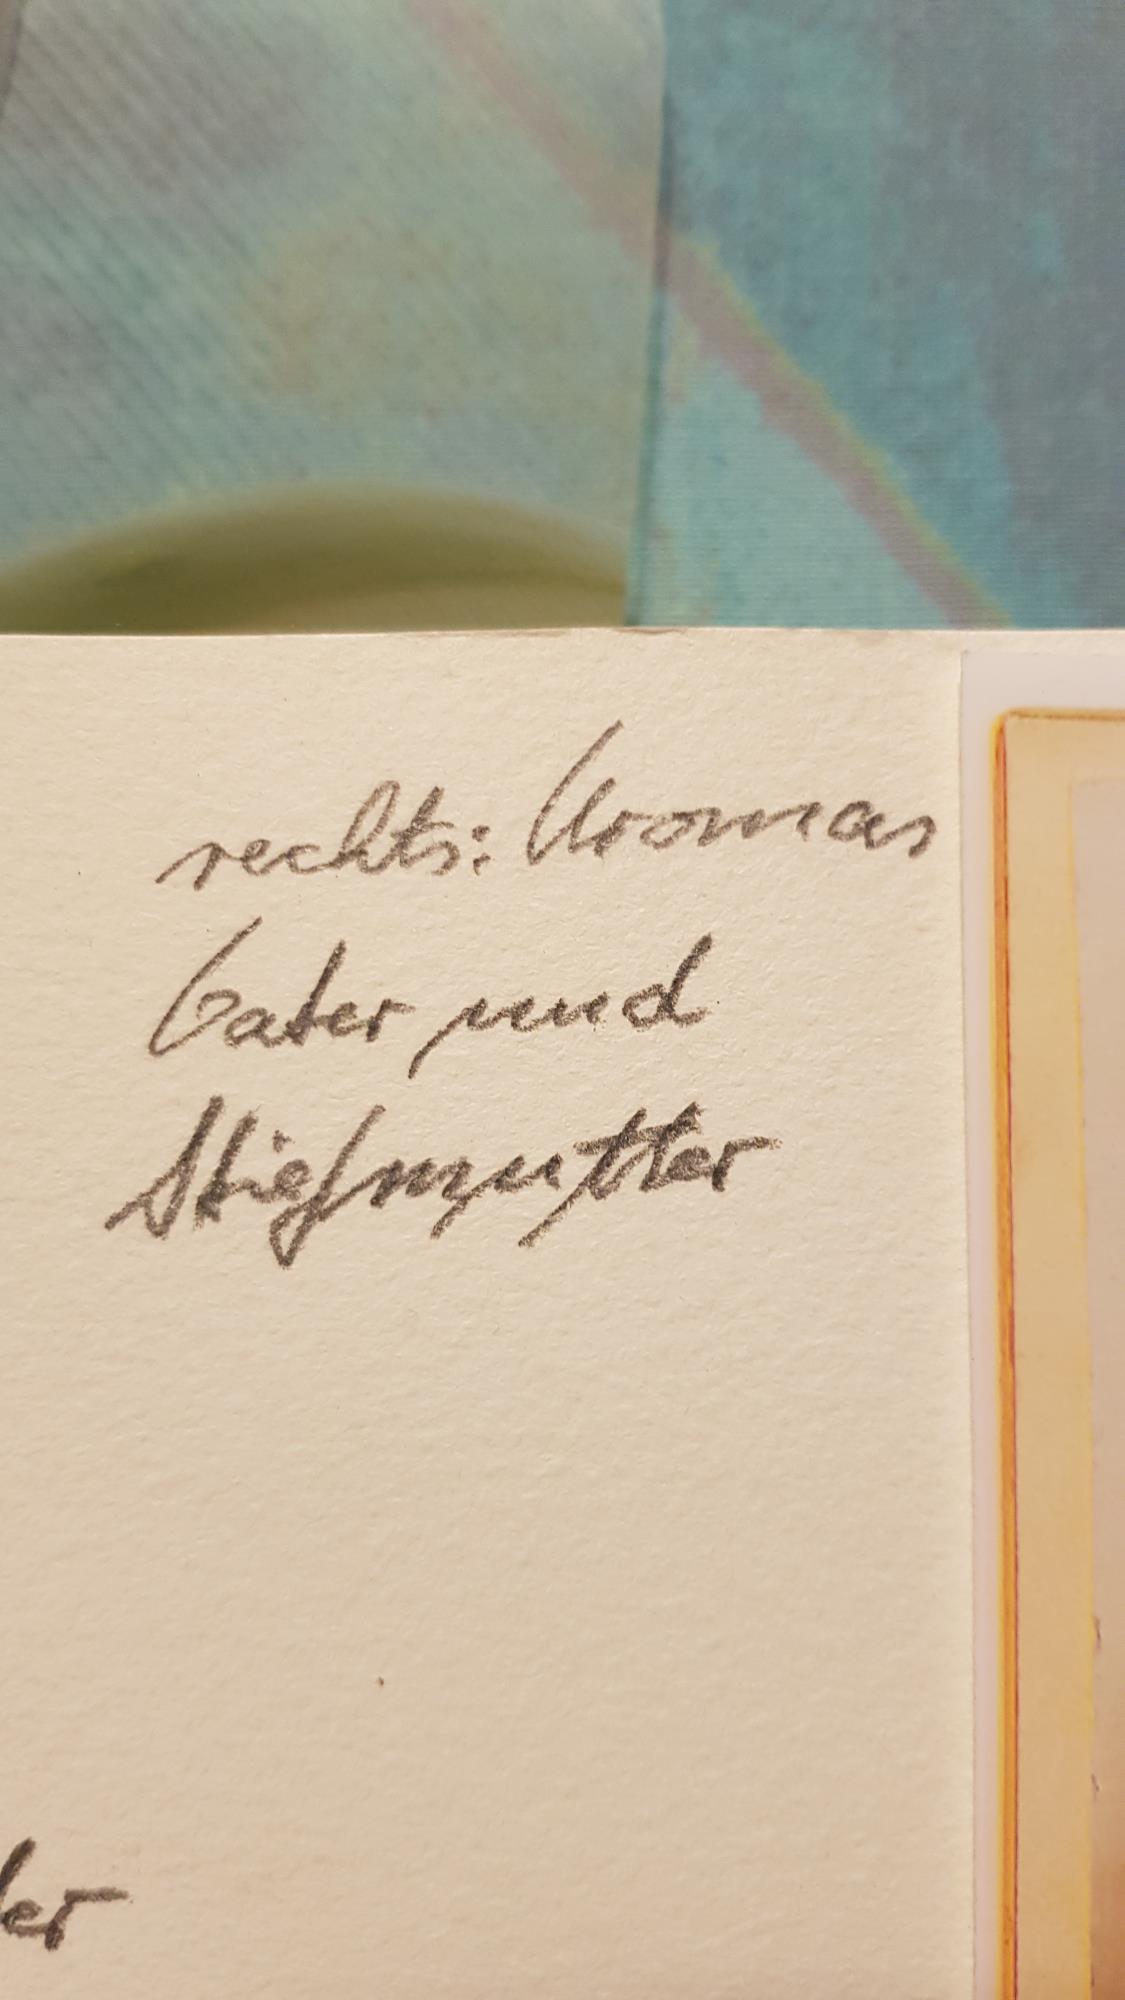 rechts: Uromas
Vater und
Stiefmutter